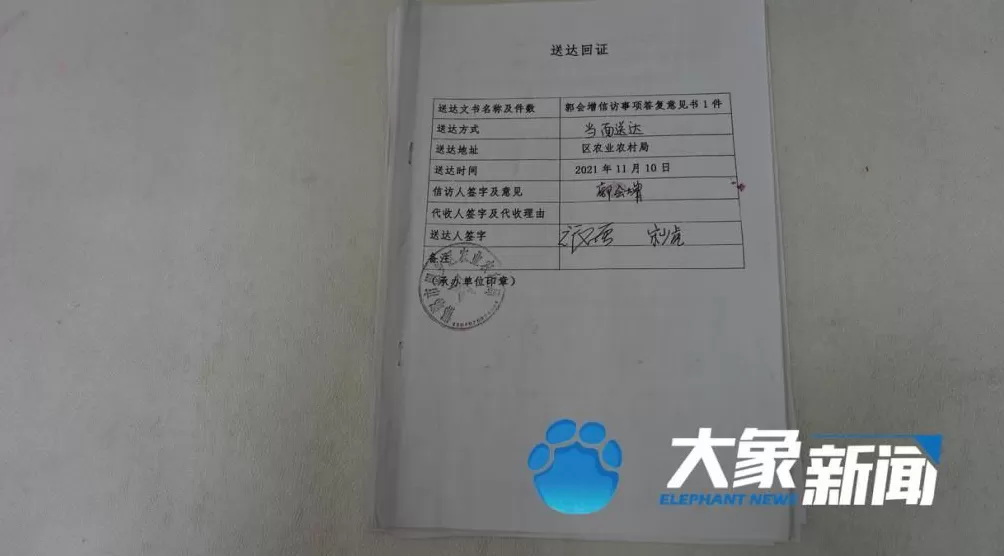 送达回证
送达文书名称及件数 郭会增信访事项答复意见书1件
送达方式 当面送达
送达地址 区农业农村局
送达时间 2021年11月10日
信访人签字及意见 郭会增
代收人签字及代收理由
送达人签字
备注
(承办单位印章)
大象新闻
ELEPHANT NEWS